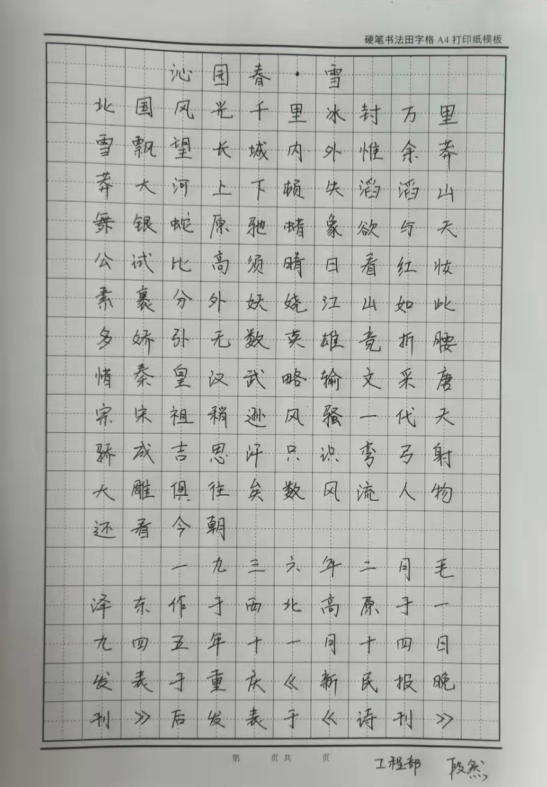 硬笔书法田字格 A4 打印纸模板
沁园春·雪
北国风光千里冰封万里
雪飘望长城内外惟余莽
莽大河上下顿失滔滔山
舞银蛇原驰蜡象欲与天
公试比高须晴日看红妆
素裹分外妖娆江山如此
多娇引无数英雄竞折腰
惜秦皇汉武略输文采唐
宗宋祖稍逊风骚一代天
骄成吉思汗只识弯弓射
大雕俱往矣数风流人物
还看今朝
一九三六年二月毛
泽东作于西北高原于一
九四五年十一月十四日
发表于重庆《新民报晚
刊》后发表于《诗刊》
第 页共 页
工程部 段然